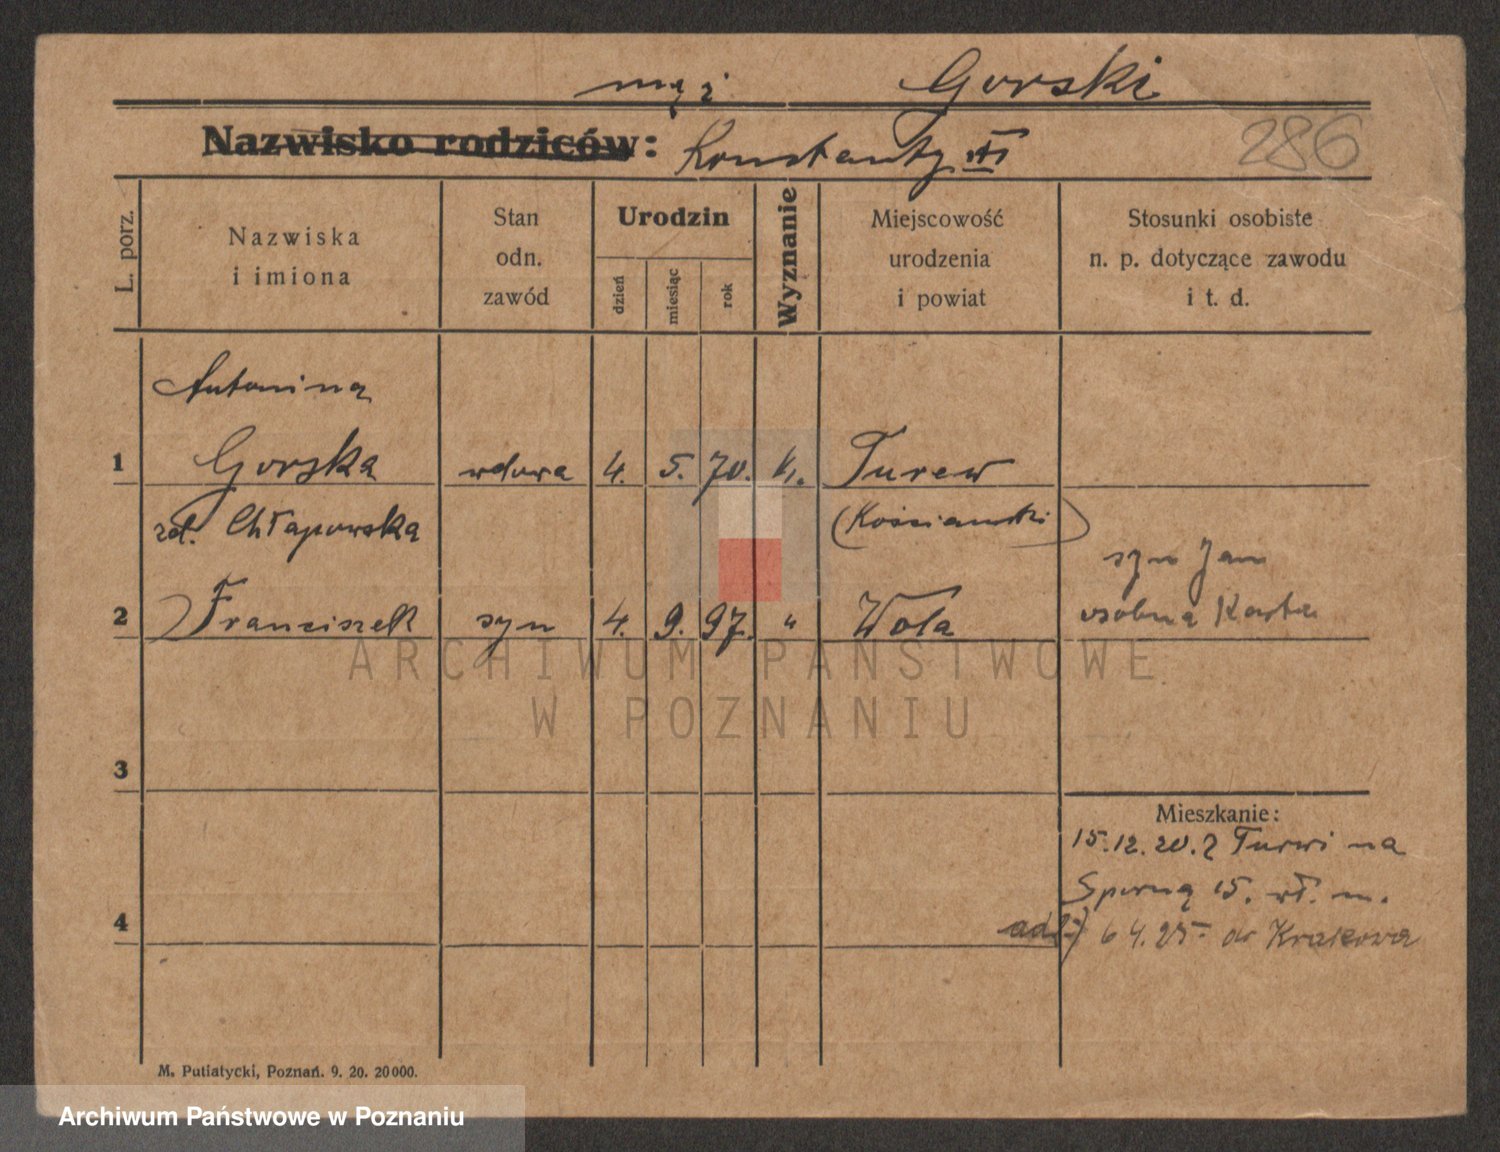 mąż Gorski
Nazwisko rodziców: Konstanty
286
L. porz.
Nazwiska
i imiona
Stan
odn.
zawód
Urodzin
dzień
miesiąc
rok
Wyznanie
Miejscowość
urodzenia
i powiat
Stosunki osobiste
n. p. dotyczące zawodu
i t. d.
Antonina
1 Gorska wdowa 4. 5. 70. k. Turew
zd. Chłapowska (Kościański)
syn Jan
2 Franciszek syn 4. 9. 97. " Wola osobna Karta
ARCHIWUM PAŃSTWOWE
W POZNANIU
3
Mieszkanie:
15.12.20. z Turwi na
Sporną 15. wł. m.
4 6 4. 25 do Krakowa
M. Putiatycki, Poznań. 9. 20. 20000.
Archiwum Państwowe w Poznaniu